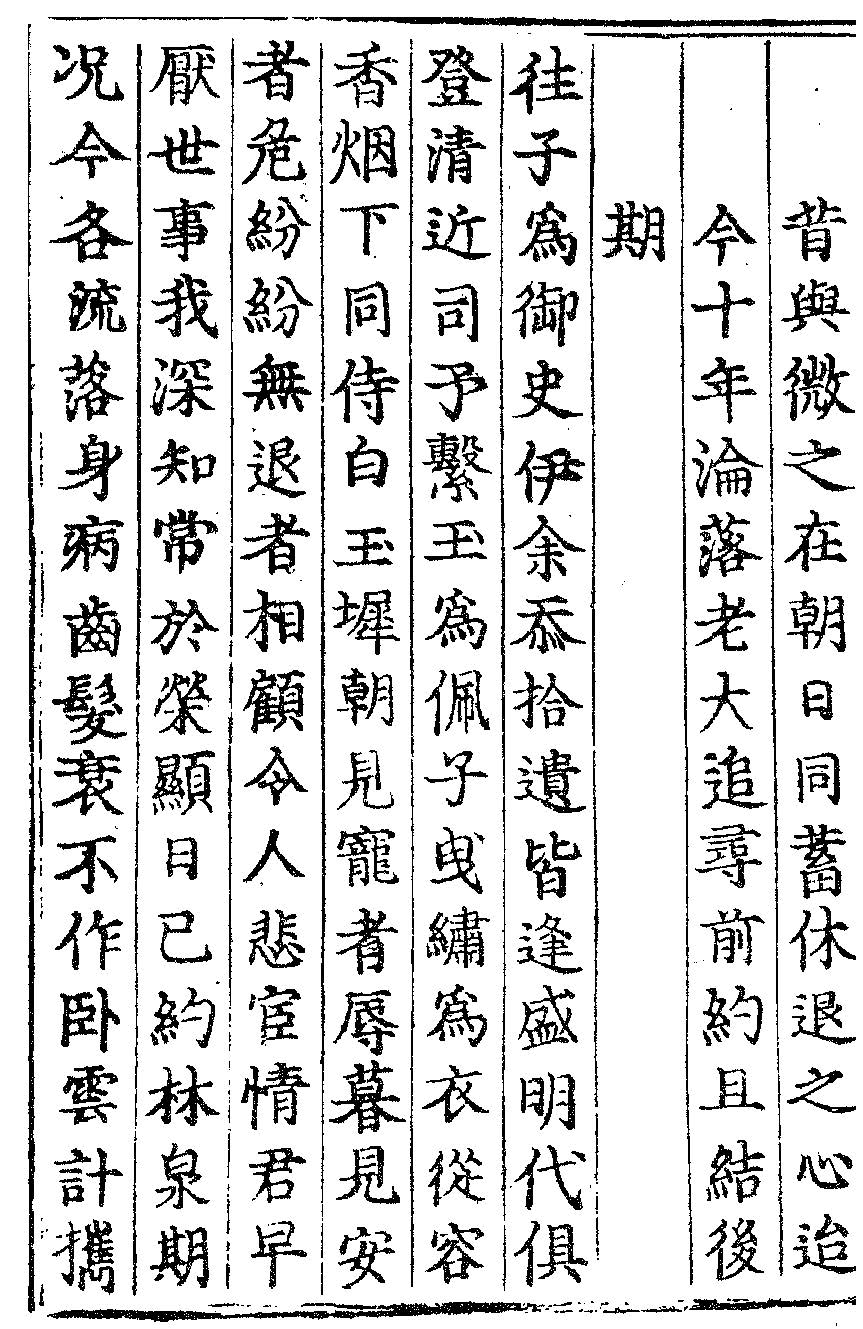 昔與微之在朝日同蓄休退之心迨
今十年淪落老大追尋前約且結後
期
往子爲御史伊余忝拾遺皆逢盛明代俱
登清近司予繫玉爲佩子曳繡爲衣從容
香烟下同侍白玉墀朝見寵者辱暮見安
者危紛紛無退者相顧令人悲宦情君早
厭世事我深知常於榮顯日已約林泉期
况今各流落身病齒髮衰不作卧雲計攜